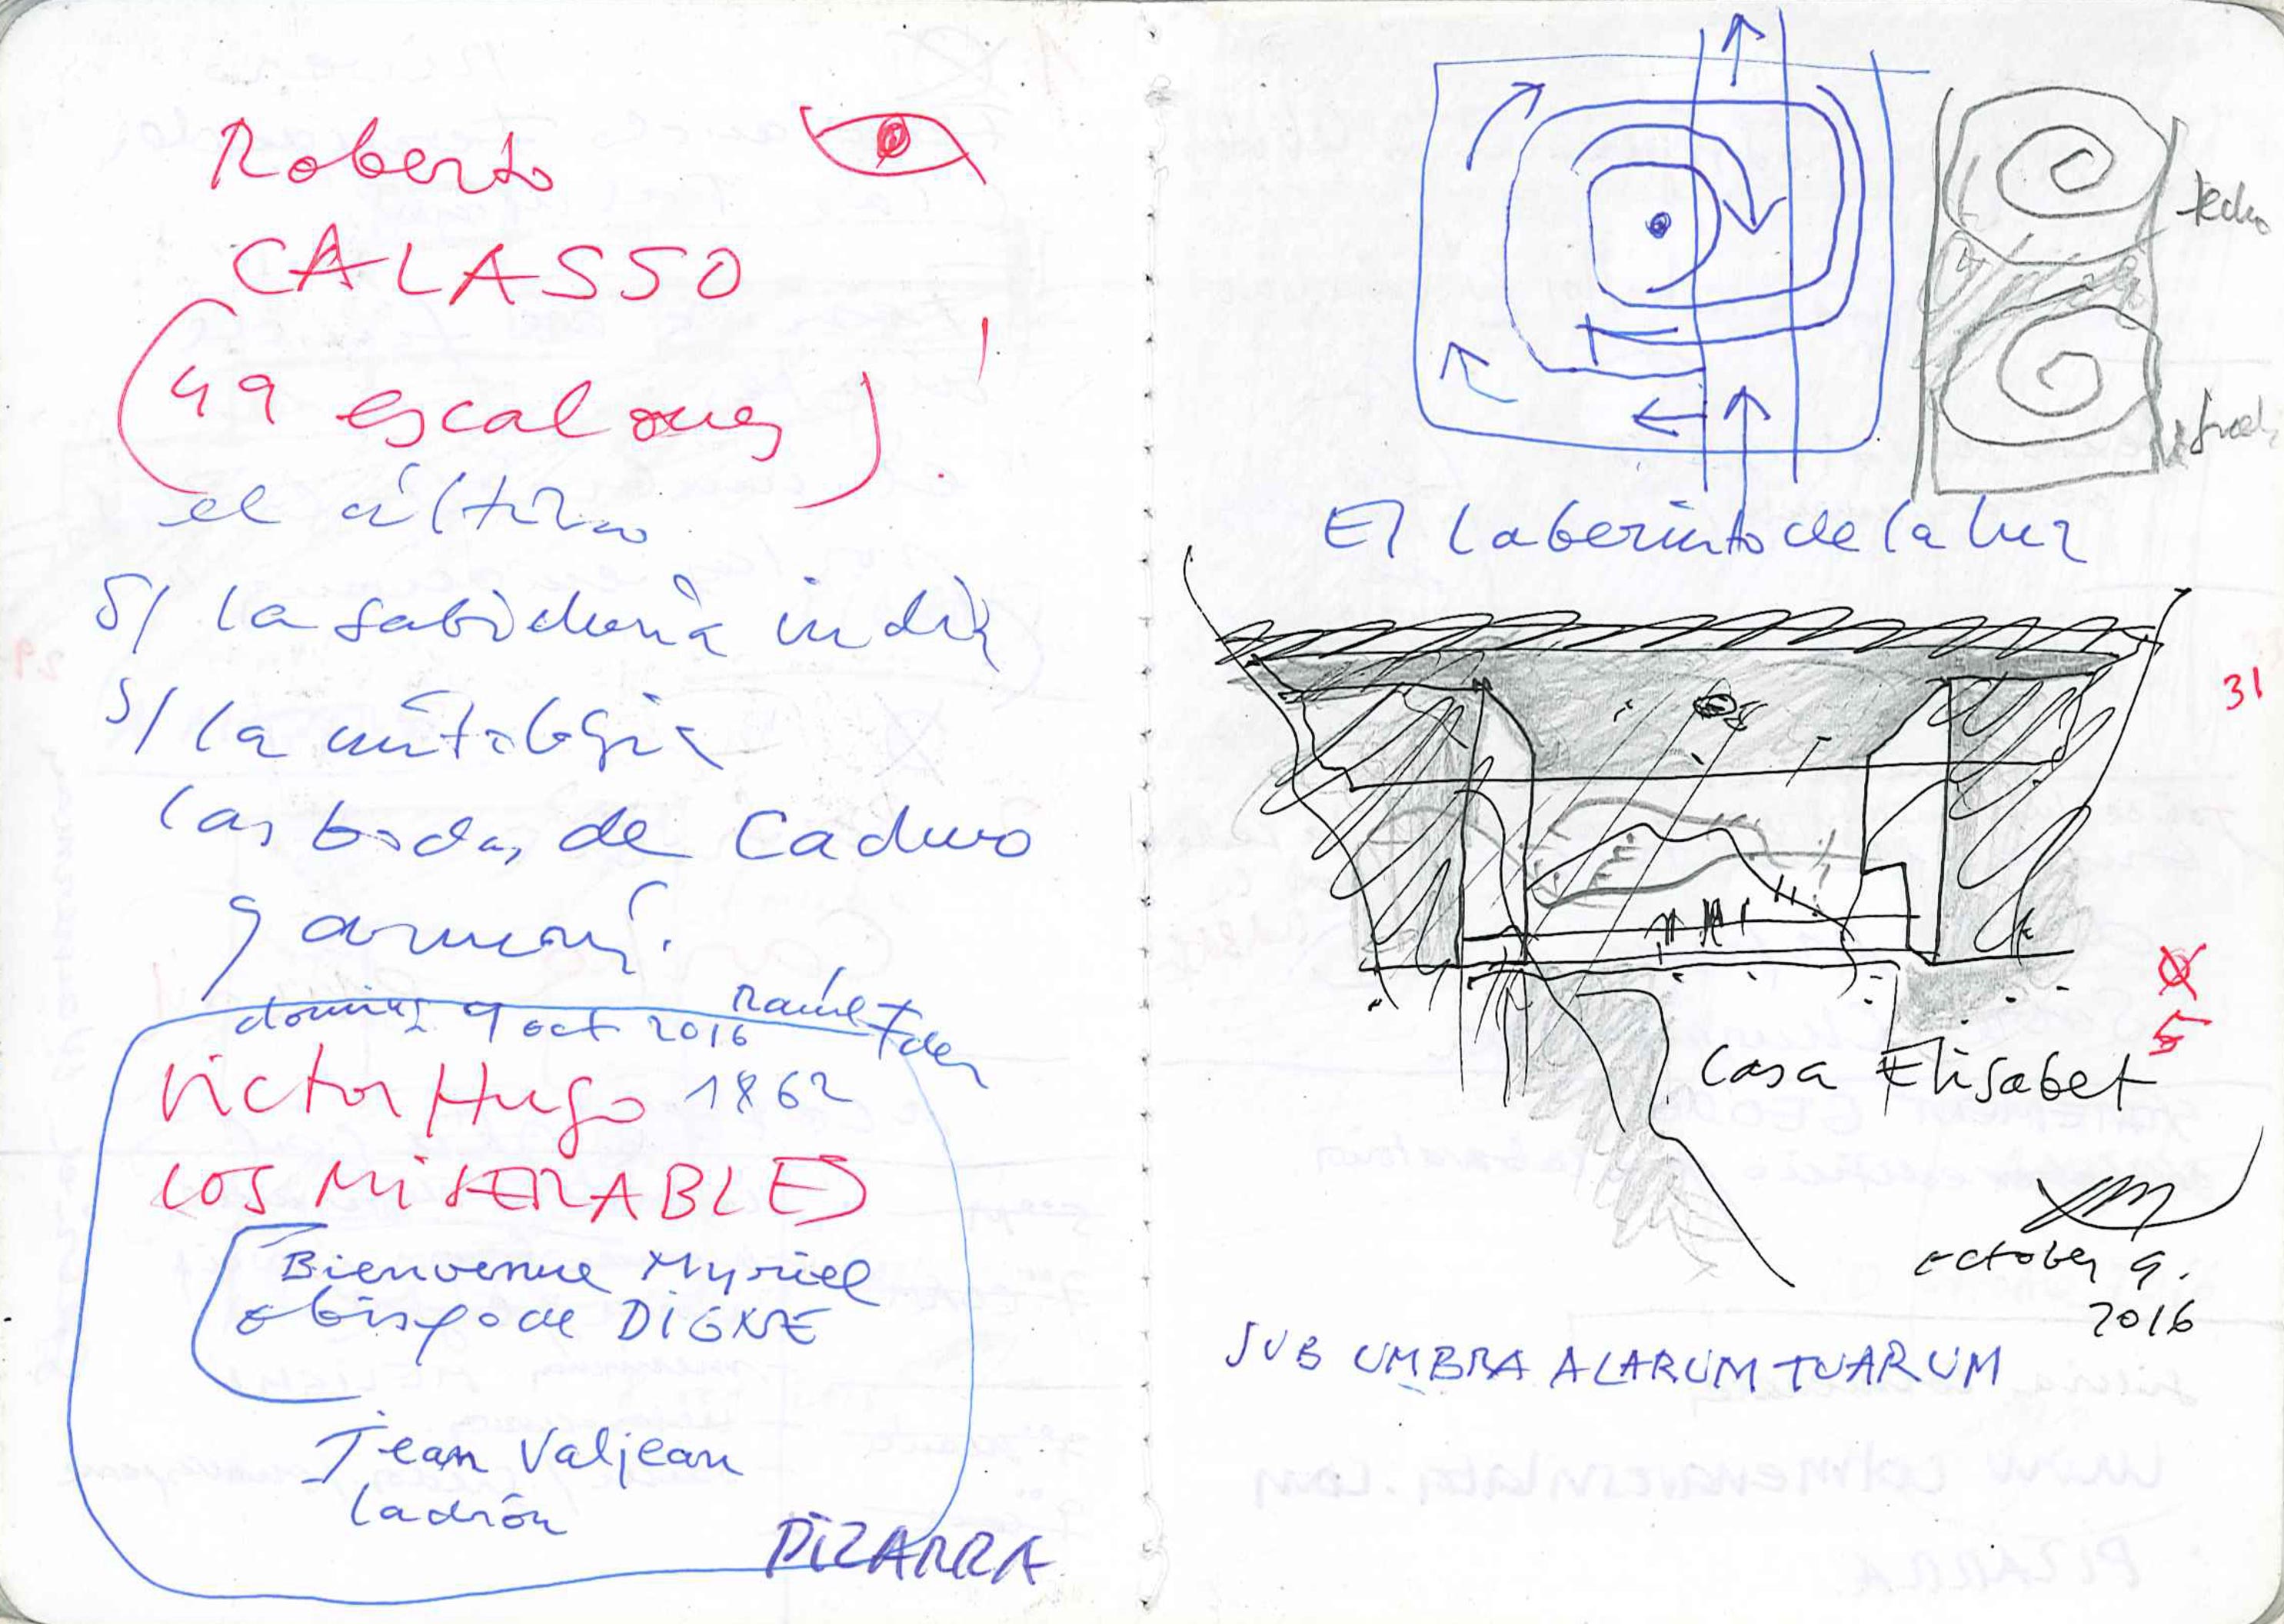 Roberto
CALASSO
(49 escalones)!
el último
s/ la sabiduría india
s/ la mitología
las bodas de Cadmo
y armoní.
doming 9 oct 2016
Victor Hugo 1862
LOS MISERABLES
Bienvenue Myriel
obispo de DIGNE
Jean Valjean
ladrón
PIZARRA
techo
El laberinto de la luz
31
5
Casa Elisabet
october 9.
2016
SUB UMBRA ALARUM TUARUM